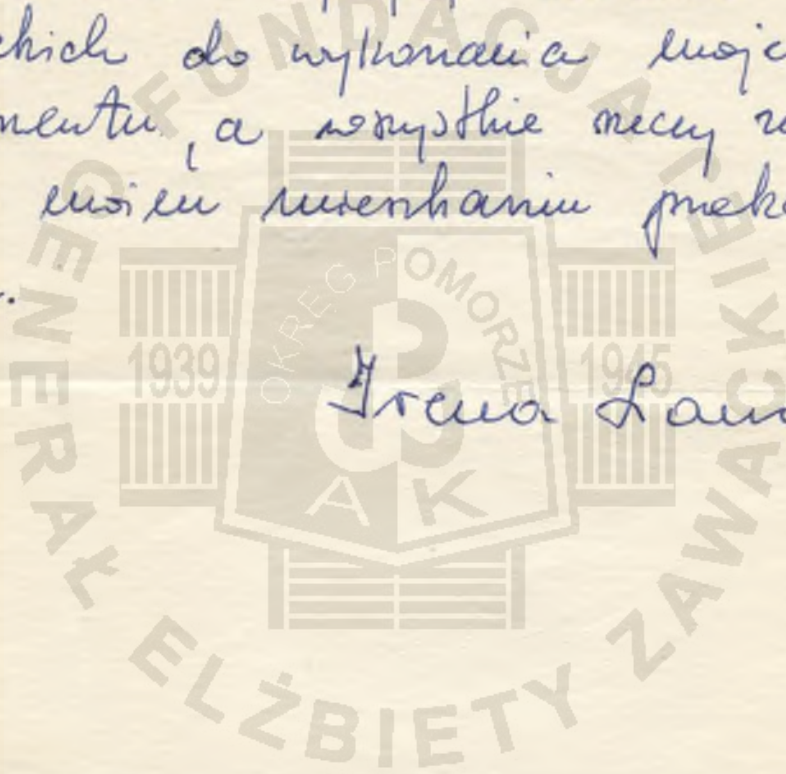 ckich do wykonania moje
mentu, a wszystkie rzeczy
moim mieszkaniu przek
Irena
FUNDACJA GENERAŁ ELŻBIETY ZAWACKIEJ
OKRĘG POMORZE
1939 1945
A K